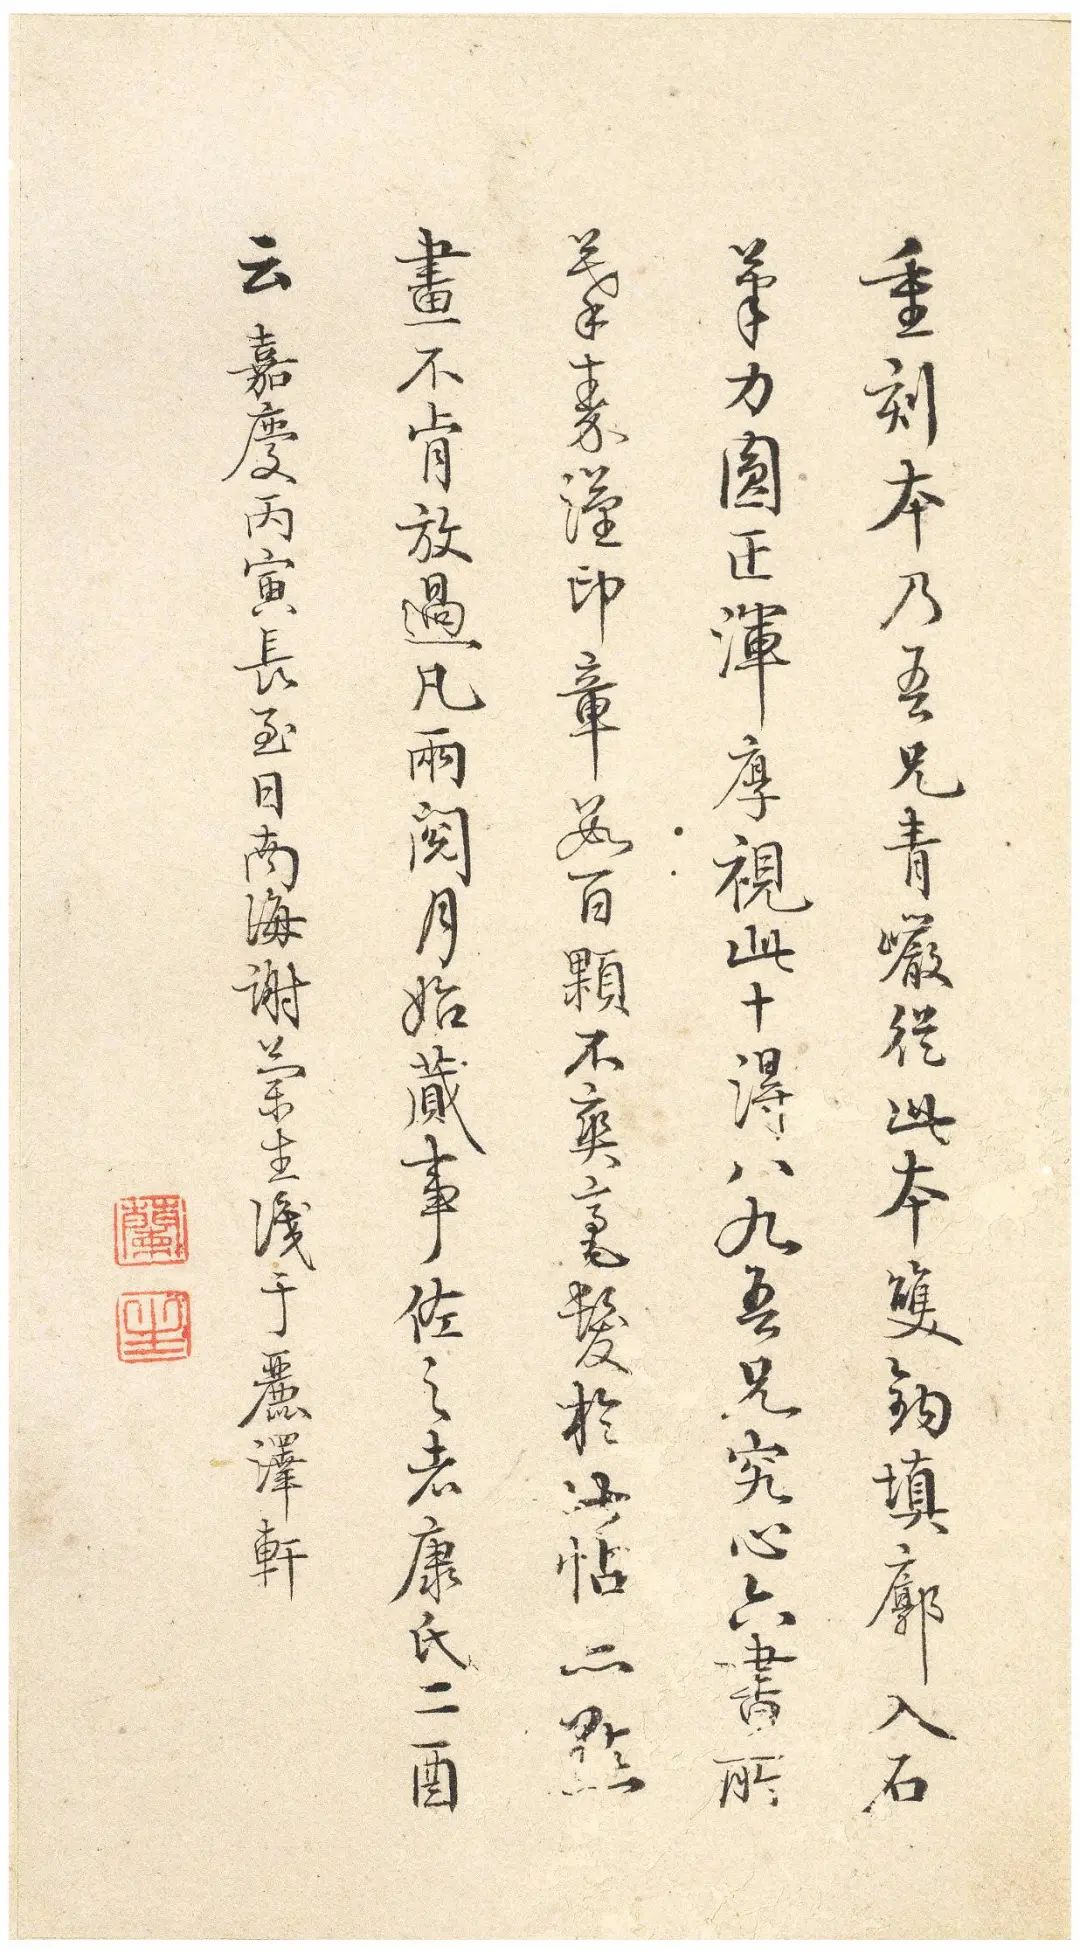 重刻本乃吾兄青巖從此本雙鉤填廓入石
筆力圓正渾厚視此十得八九吾兄究心六書所
筆素謹印章數百顆不爽毫髮於此帖一點
畫不肯放過凡兩閱月始蕆事佐之者康氏二酉
云嘉慶丙寅長至日南海謝蘭生識于麗澤軒
蘭
生